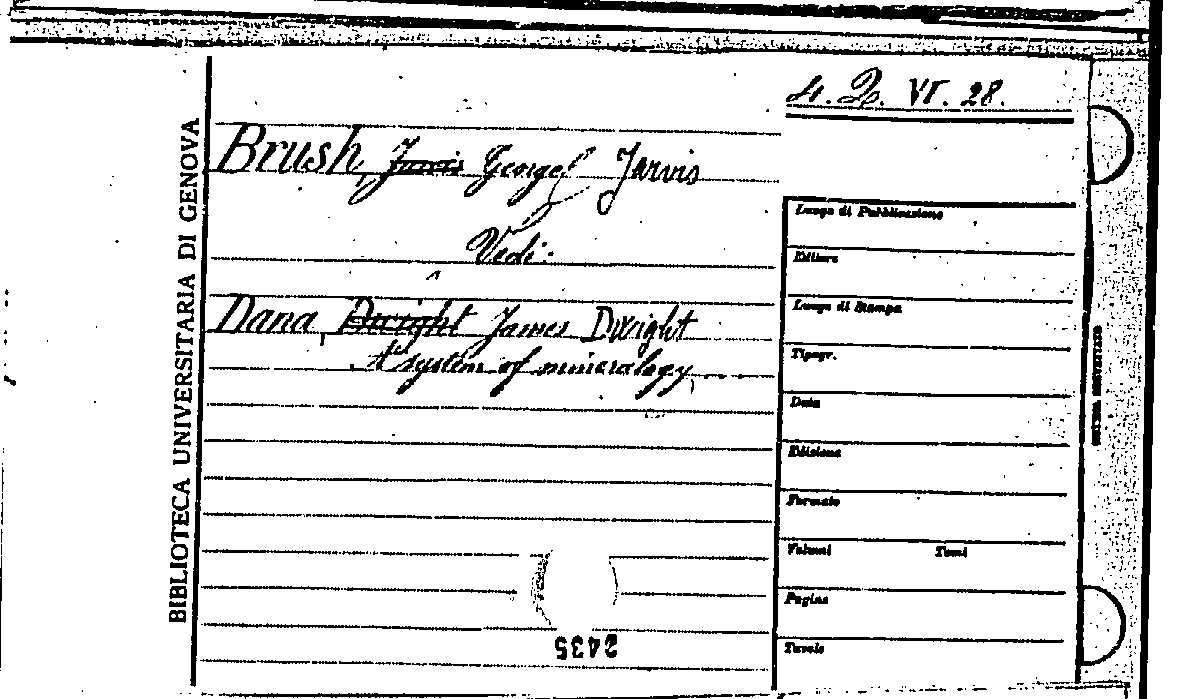 4. Q. VI. 28.
BIBLIOTECA UNIVERSITARIA DI GENOVA
Brush, Jarvis George Jarvis
Vedi:
Dana, Dwight James Dwight
A system of mineralogy
Luogo di Pubblicazione
Editore
Luogo di Stampa
Tipogr.
Data
Edizione
Formato
Volumi Tomi
Pagine
Tavole
2435